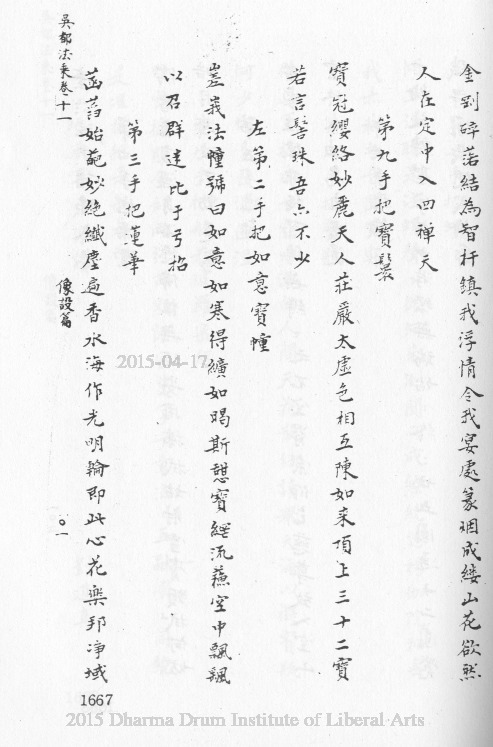 金剛磾䃕結為智杆鎮我浮情令我宴處篆烟成縷山花欲然
人在定中入四禪天
第九手把寶鬘
寶冠纓絡妙麗天人莊嚴太虛色相互陳如来頂上三十二寶
若言髻珠吾亦不少
左第二手把如意寶幢
岌峩法幢號曰如意如寒得纊如暍斯憇寶網流蘓空中飄颻
以召群迷比于弓招
第三手把蓮華
菡萏始葩妙絕纖塵遍香水海作光明輪即此心花樂邦凈域
吳都法乘卷十一
像設篇
一〇一
1667
2015-04-17
2015 Dharma Drum Institute of Liberal Arts